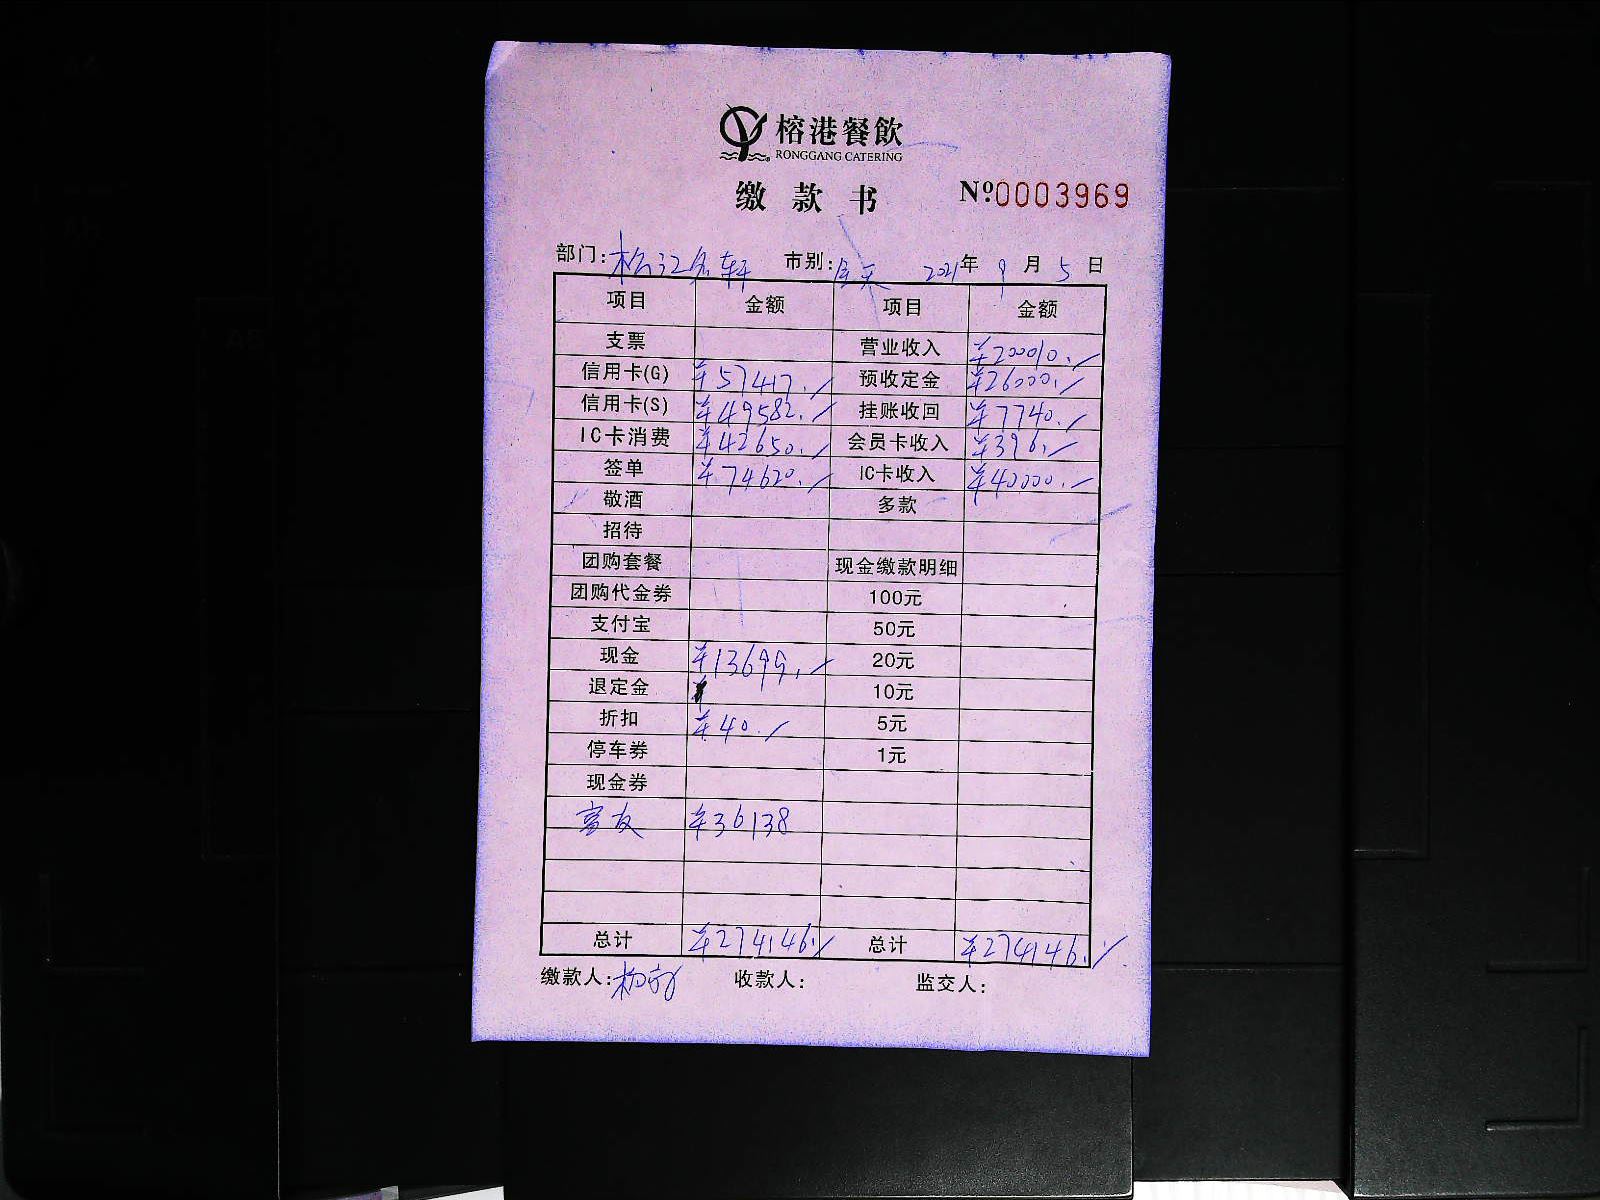 榕港餐飲
RONGGANG CATERING
缴款书 Nº0003969
部门:松江名轩 市别:全天 2021年 9月 5日
项目 金额 项目 金额
支票 营业收入 ¥200010.
信用卡(G) ¥57417. 预收定金 ¥26000.
信用卡(S) ¥49582. 挂账收回 ¥7740.
IC卡消费 ¥42650. 会员卡收入 ¥396.
签单 ¥74620. IC卡收入 ¥40000.
敬酒 多款
招待
团购套餐 现金缴款明细
团购代金券 100元
支付宝 50元
现金 ¥13699. 20元
退定金 10元
折扣 ¥40. 5元
停车券 1元
现金券
富友 ¥36138
总计 ¥274146. 总计 ¥274146.
缴款人: 收款人: 监交人: